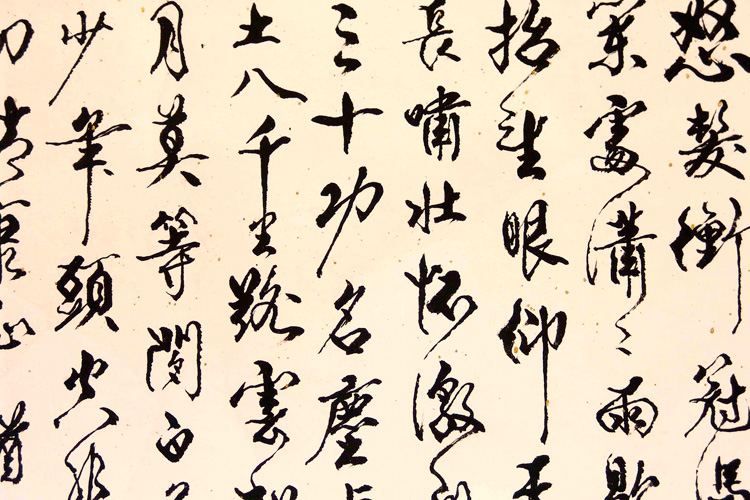 怒髮衝冠
處瀟々雨歇
抬望眼仰天
長嘯壯懷激烈
三十功名塵與
土八千里路雲和
月莫等閒白了
少年頭空悲